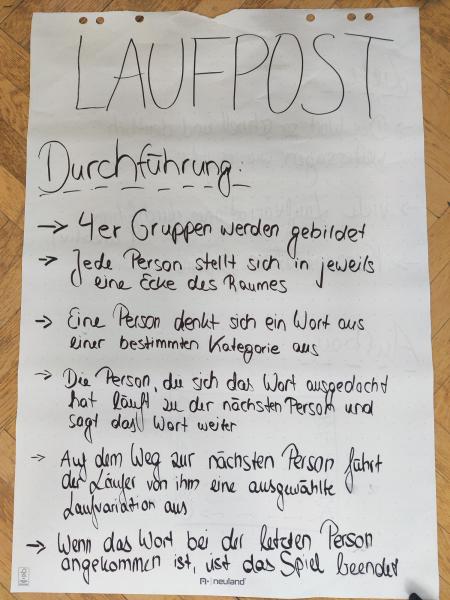 LAUFPOST
Durchführung:
→ 4er Gruppen werden gebildet
→ Jede Person stellt sich in jeweils
eine Ecke des Raumes
→ Eine Person denkt sich ein Wort aus
einer bestimmten Kategorie aus
→ Die Person, die sich das Wort ausgedacht
hat läuft zu der nächsten Person und
sagt das Wort weiter
→ Auf dem Weg zur nächsten Person führt
der Läufer von ihm eine ausgewählte
Laufvariation aus
→ Wenn das Wort bei der letzten Person
angekommen ist, ist das Spiel beendet
neuland